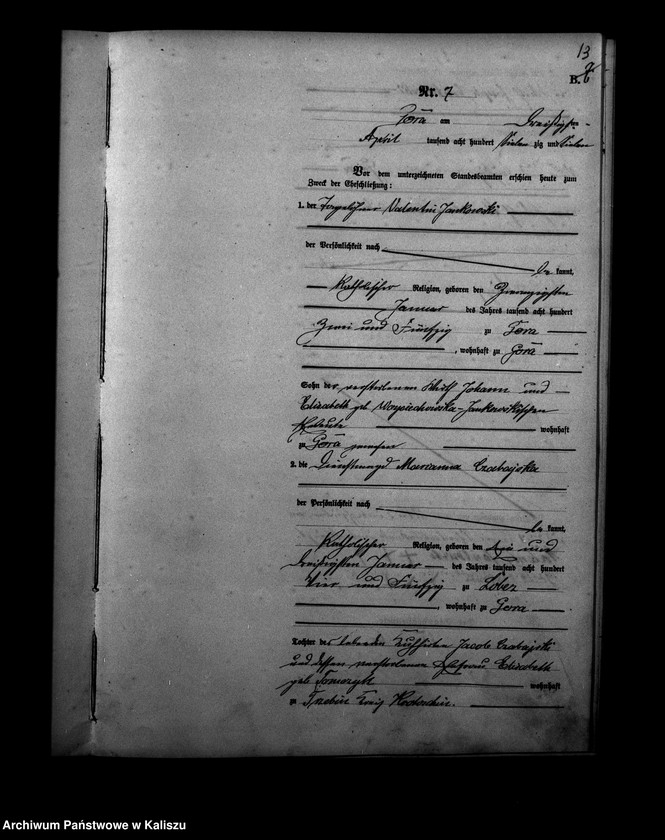 13
B.
Nr. 7
Góra am Dreißigsten
April tausend acht hundert Sieben zig und Sieben
Vor dem unterzeichneten Standesbeamten erschien heute zum
Zweck der Eheschließung:
1. der Tagelöhner Valentin Jankowski
der Persönlichkeit nach
be kannt,
Katholischer Religion, geboren den
Januar des Jahres tausend acht hundert
Zwei und Fünfzig zu Gora
, wohnhaft zu Góra
Sohn der verstorbenen Johann und
Elisabeth geb Woyciechowska-Jankowskischen
Eheleute wohnhaft
zu Góra gewesen
2. die Dienstmagd Marianna Czabajska
der Persönlichkeit nach
be kannt,
Katholischer Religion, geboren den Ein und
dreißigsten Januar des Jahres tausend acht hundert
Vier und Fünfzig zu
, wohnhaft zu Gora
Tochter des lebenden Kuhhirten Jacob Czabajski
und dessen verstorbenen Ehefrau Elisabeth
geb wohnhaft
zu
Archiwum Państwowe w Kaliszu